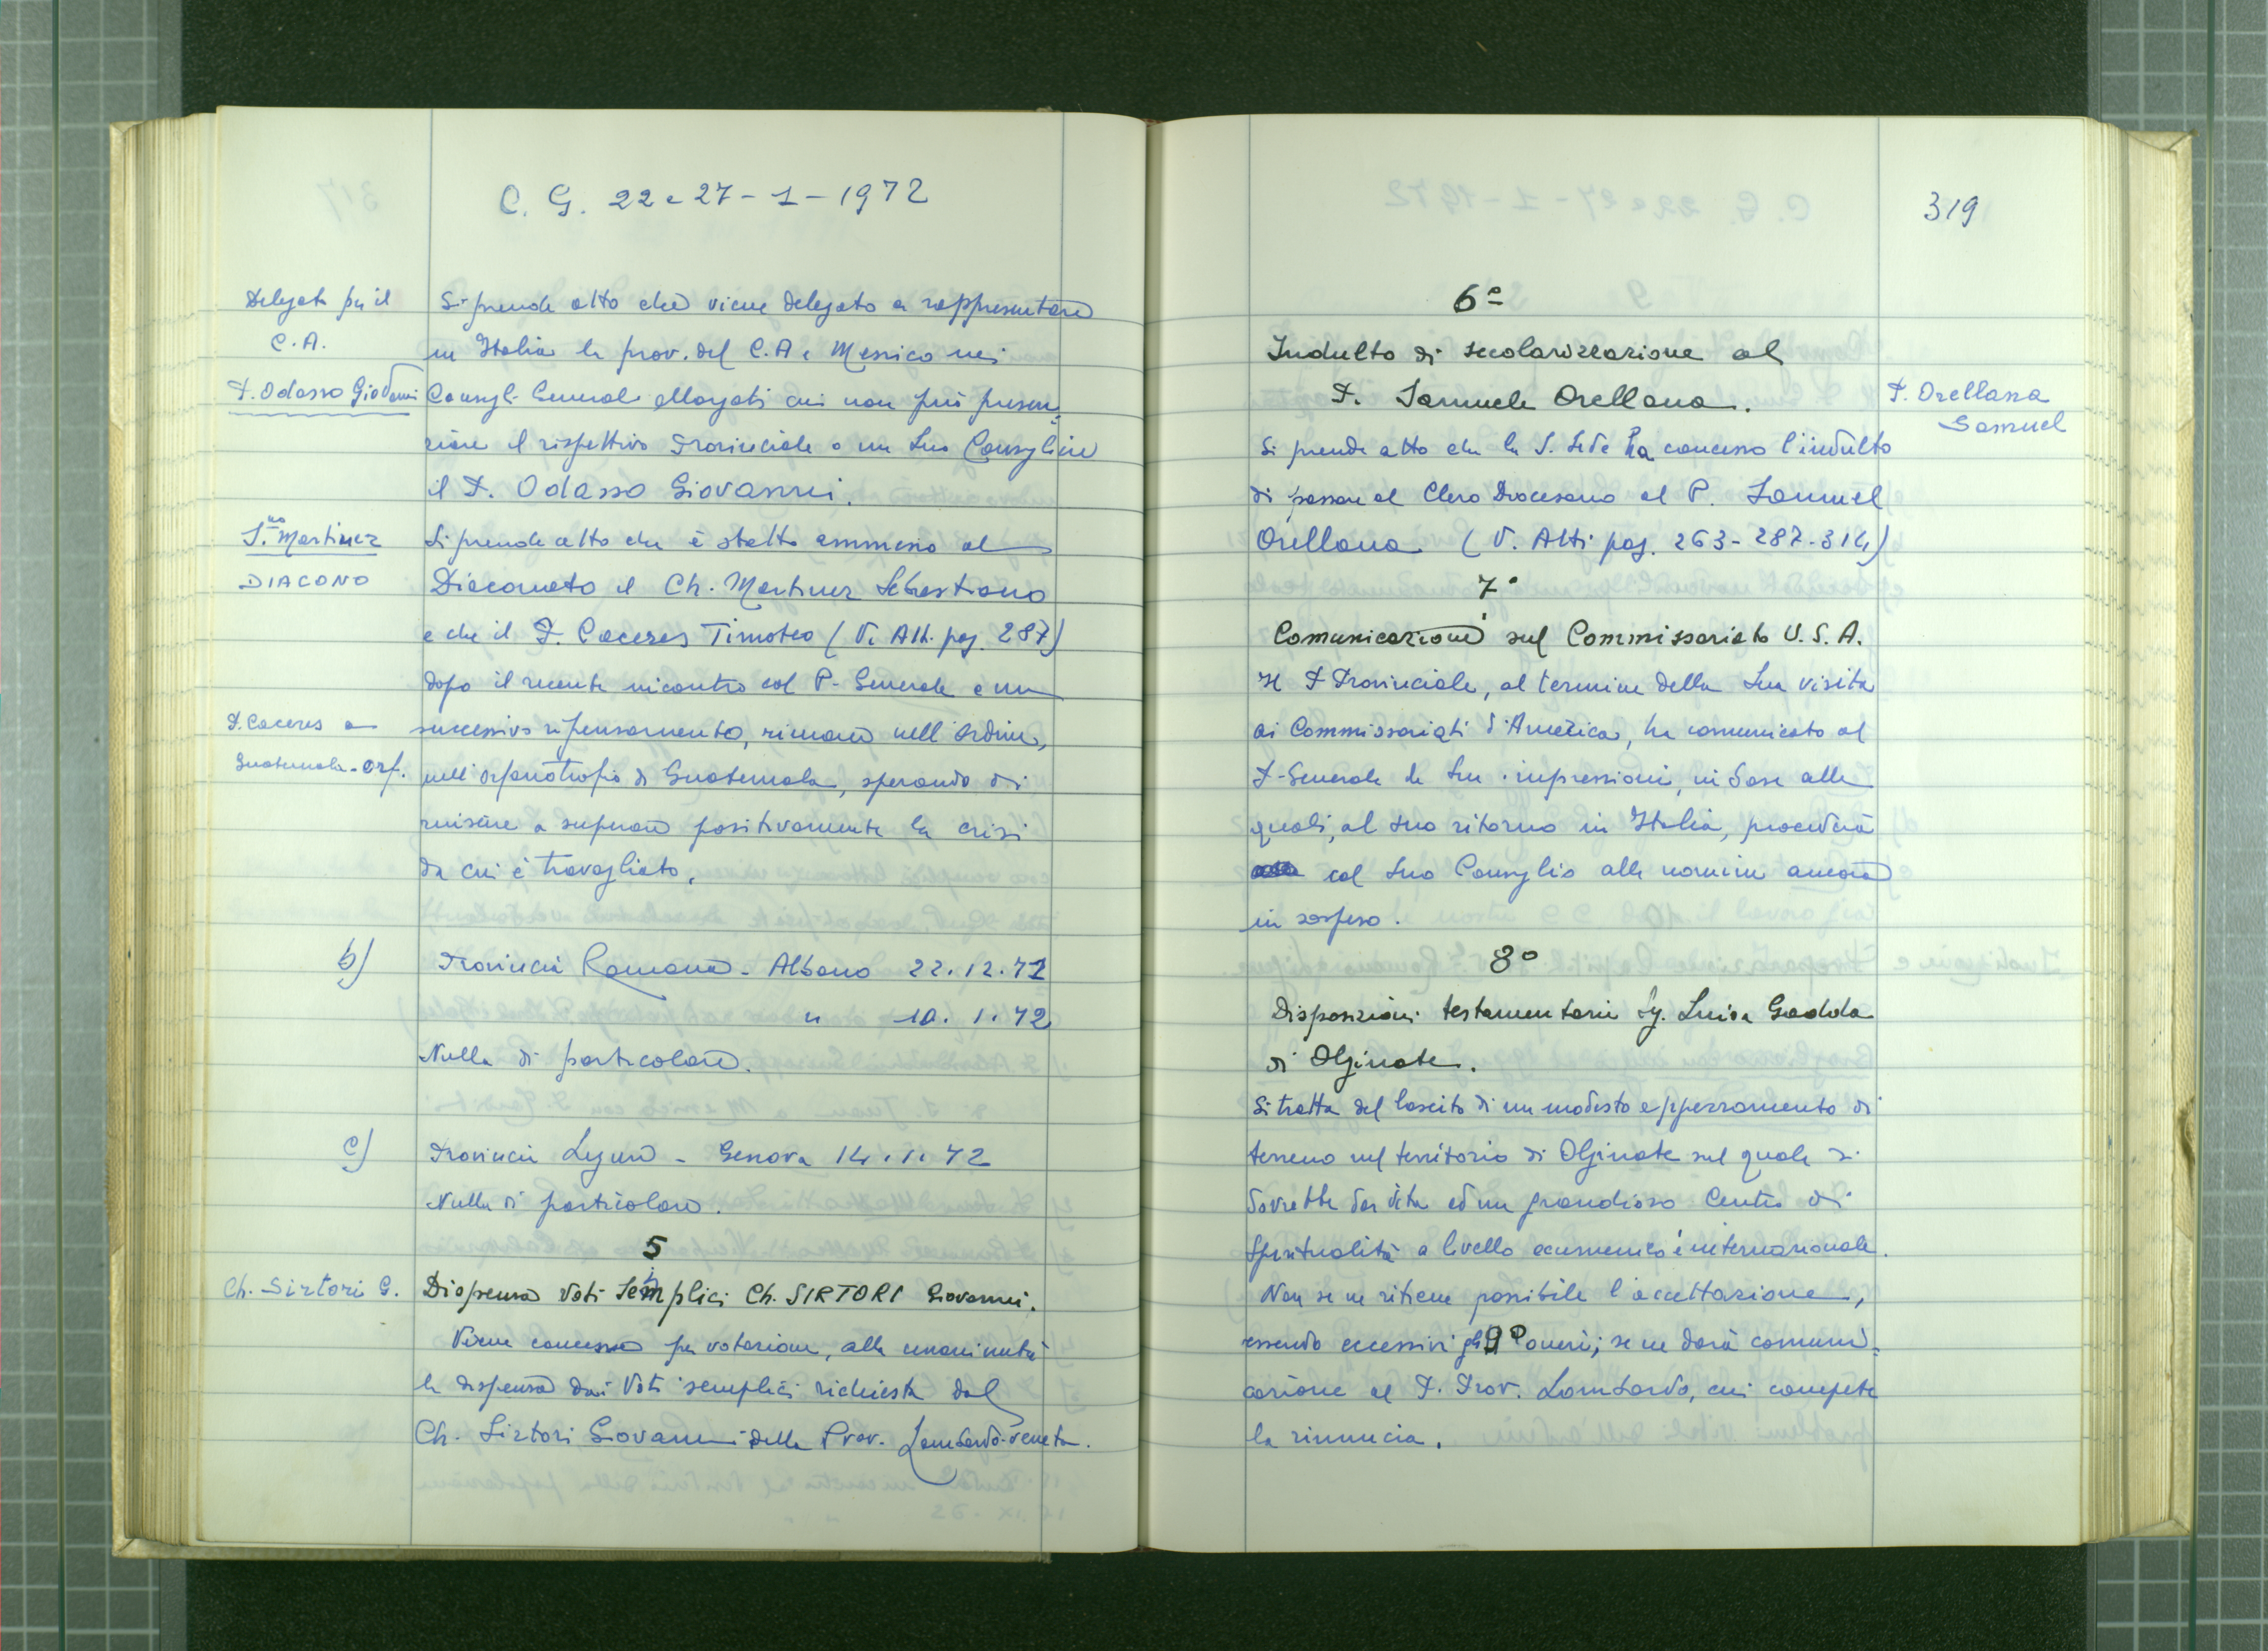 C. G. 22 e 27-1-1972
Delegato per il
C.A.
P. Odasso Giovanni
Si prende atto che viene delegato a rappresentare
in Italia la prov. del C.A e Messico nei
Consigli Generali allargati cui non può presen=
ziare il rispettivo Provinciale o un suo Consigliere
il P. Odasso Giovanni.
Martinez
DIACONO
Si prende atto che è stato ammesso al
Diaconato il Ch. Martinez Sebastiano
e che il P. Caceres Timoteo (V. Atti pag. 287)
dopo il recente incontro col P. Generale e un
P. Caceres a
Guatemala-Orf.
successivo ripensamento, rimane nell'Ordine,
nell'Orfanotrofio di Guatemala, sperando di
riuscire a superare positivamente la crisi
da cui è travagliato.
b)
Provincia Romana - Albano 22.12.72
" 10.1.72
Nulla di particolare.
c)
Provincia Ligure - Genova 14.1.72
Nulla di particolare.
5
Ch. Sirtori G.
Dispensa Voti Semplici Ch. SIRTORI Giovanni.
Viene concessa per votazione, alla unanimità
la dispensa dai Voti semplici richiesta dal
Ch. Sirtori Giovanni della Prov. Lombardo-veneta.
319
6°
Indulto di secolarizzazione al
P. Samuele Orellana.
P. Orellana
Samuel
Si prende atto che la S. Sede ha concesso l'indulto
di passare al Clero Diocesano al P. Samuel
Orellana (V. Atti pag. 263-287-314)
7°
Comunicazione sul Commissariato U.S.A.
Il P Provinciale, al termine della sua visita
ai Commissariati d'America, ha comunicato al
P-Generale le sue impressioni, in base alle
quali, al suo ritorno in Italia, procederà
col suo Consiglio alle nomine ancora
in sospeso.
8°
Disposizioni testamentarie Sg. Luisa Gadda
di Olginate.
Si tratta del lascito di un modesto appezzamento di
terreno nel territorio di Olginate sul quale si
dovrebbe dar vita ad un grandioso Centro di
Spiritualità a livello ecumenico e internazionale.
Non se ne ritiene possibile l'accettazione,
essendo eccessivi gli oneri; se ne darà comuni=
cazione al P. Prov. Lombardo, cui compete
la rinuncia.